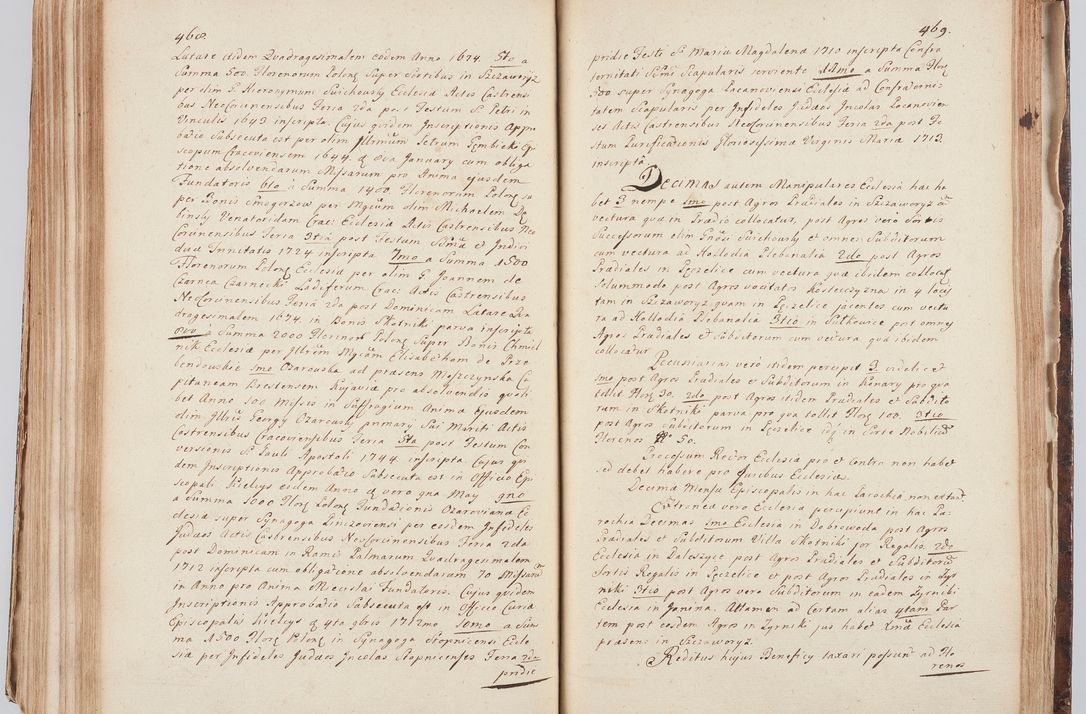 468.
Lætare itidem Quadragesimalem eodem Anno 1674. 5to a
Summa 500. Florenorum Polonz Super Sortibus in Szczaworyż
per olim G. Hieronymum Swichowsky Ecclesiæ Actis Castrens
bus NeoCorcinensibus Feria 2da post Festum S. Petri in
Vinculis 1643 inscripta. Cujus quidem Inscriptionis Appro
batio Subsecuta est per olim Petrum Gembicki Epi
scopum Cracoviensem 1644. d 8va January cum obliga
tione absolvendarum Missarum pro Anima ejusdem
Fundatoris 6to a Summa 1400. Florenorum Polonz su
per Bonis Smogorzow per Mgcum olim Michaelem De
binsky Venatoridam Crac: Ecclesiæ Actis Castrensibus Neo
Corcinensibus Feria 3tia post Festum Ssmæ et Individ
duæ Trinitatis 1724 inscripta. 7mo a Summa 1500
Florenorum Polonz Ecclesiæ per olim G Joannem de
Czarnca Czarnecki Ladiferum Crac: Actis Castrensibus
NeoCorcinensibus Feria 2da post Dominicam Lætare Qua
dragesimalem 1674. in Bonis Skotniki parva inscripta
8vo a Summa 2000 Florenor Polonz Super Bonis Chmiel
nik Ecclesiæ per Illrem Mgcam Elisabetham de Prze
bendowskie 1mo Ozarowska ad præsens Moszczynska Ca
pitaneam Brestensem Kujaviæ pro absolvendis quoli
bet Anno 100 Missis in Suffragium Animæ Ejusdem
olim Illris Georgy Ozarowsky primary Sui Mariti Actis
Castrensibus Cracoviensibus Feria 5ta post Festum Con
versionis S. Pauli Apostoli 1744. inscripta. Cujus qui
dem Inscriptionis Approbatio Subsecuta est in Officio Epi
scopali Kielcys eodem Anno d vero gna May 9no
a Summa 1000 Florz Polonz Fundationis Ozaroviana Ec
clesiæ super Synagoga Pinczoviensi per eosdem Infideles
Judæos Actis Castrensibus NeoCorcinensibus Feria 2da
post Dominicam in Ramis Palmarum Quadragesimalem
1712 inscripta cum obligatione absolvendarum 70 Missarum
in Anno pro Anima Niceslai Fundatoris. Cujus quidem
Inscriptionis Approbatio Subsecuta est in Officio Curiæ
Episcopalis Kielcys d 4ta 9bris 1712mo 10mo a Sum
ma 1500 Florz Polonz in Synagoga Stopnicensi Eccle
siæ per Infideles Judæos Incolas Stopnicenses Feria 2da
pridie
469.
pridie Festi S. Mariæ Magdalenæ 1710 inscripta Confra
ternitati Ssmi Scapularis serviente 11mo a Summa Florz
300 super Synagoga Lacanoviensi Ecclesiæ ad Confraterni
tatem Scapularis per Infideles Judæos Incolas Lacanovien
ses Actis Castrensibus NeoCorcinensibus Feria 2da post Fe
stum Purificationis Gloriosissimæ Virginis Mariæ 1713.
inscripta
Decimas autem Manipulares Ecclesia hæc ha
bet 3. nempe 1mo post Agros Prædiales in Szczaworyż cum
vectura quæ in Prædio collocatur, post Agros vero Sortis
Successorum olim Gnosi Swichowsky et omnes Subditorum
cum vectura ad Hallodia Plebanalia 2do post Agros
Prædiales in Pęczelice cum vectura quæ ibidem collocat
Solummodo post Agros vocitatos Kosteczyzna in 4 locis
tam in Szczaworyż quam in Pęczelice jacentes cum vectu
ra ad Hallodia Plebanalia 3tio in Sułkowice post omnes
Agros Prædiales et Subditorum cum vectura quæ ibidem
collocatur
Pecuniarias vero itidem percipit 3. videlicet
1mo post Agros Prædiales et Subditorum in Konary pro qua
tollit Florz 30. 2do post Agros itidem Prædiales et Subdito
rum in Skotniki parva pro qua tollit Florz 100. 3tio
post Agros Subditorum in Pęczelice idq in Sorte Nobilium
Florenos 50.
Processum Rector Ecclesiæ pro et contra non habet
sed debet habere pro Juribus Ecclesiæ.
Decima Mensæ Episcopalis in hac Parochia non extant
Extraneæ vero Ecclesiæ percipiunt in hac Pa
rochia Decimas 1mo Ecclesia in Dobrowoda post Agros
Prædiales et Subditorum Villæ Skotniki per Regalis 2do
Ecclesia in Daleszyce post Agros Prædiales et Subditorum
Sortis Regalis in Pęczelice et post Agros Prædiales in Żyr
niki 3tio post Agros vero Subditorum in eadem Żyrniki
Ecclesia in Janina. Attamen ad Certam alias 4tam Par
tem post eosdem Agros in Żyrniki jus habet Ecclesia
præsens in Szczaworyż.
Reditus hujus Beneficy taxari possunt ad Flo
renos